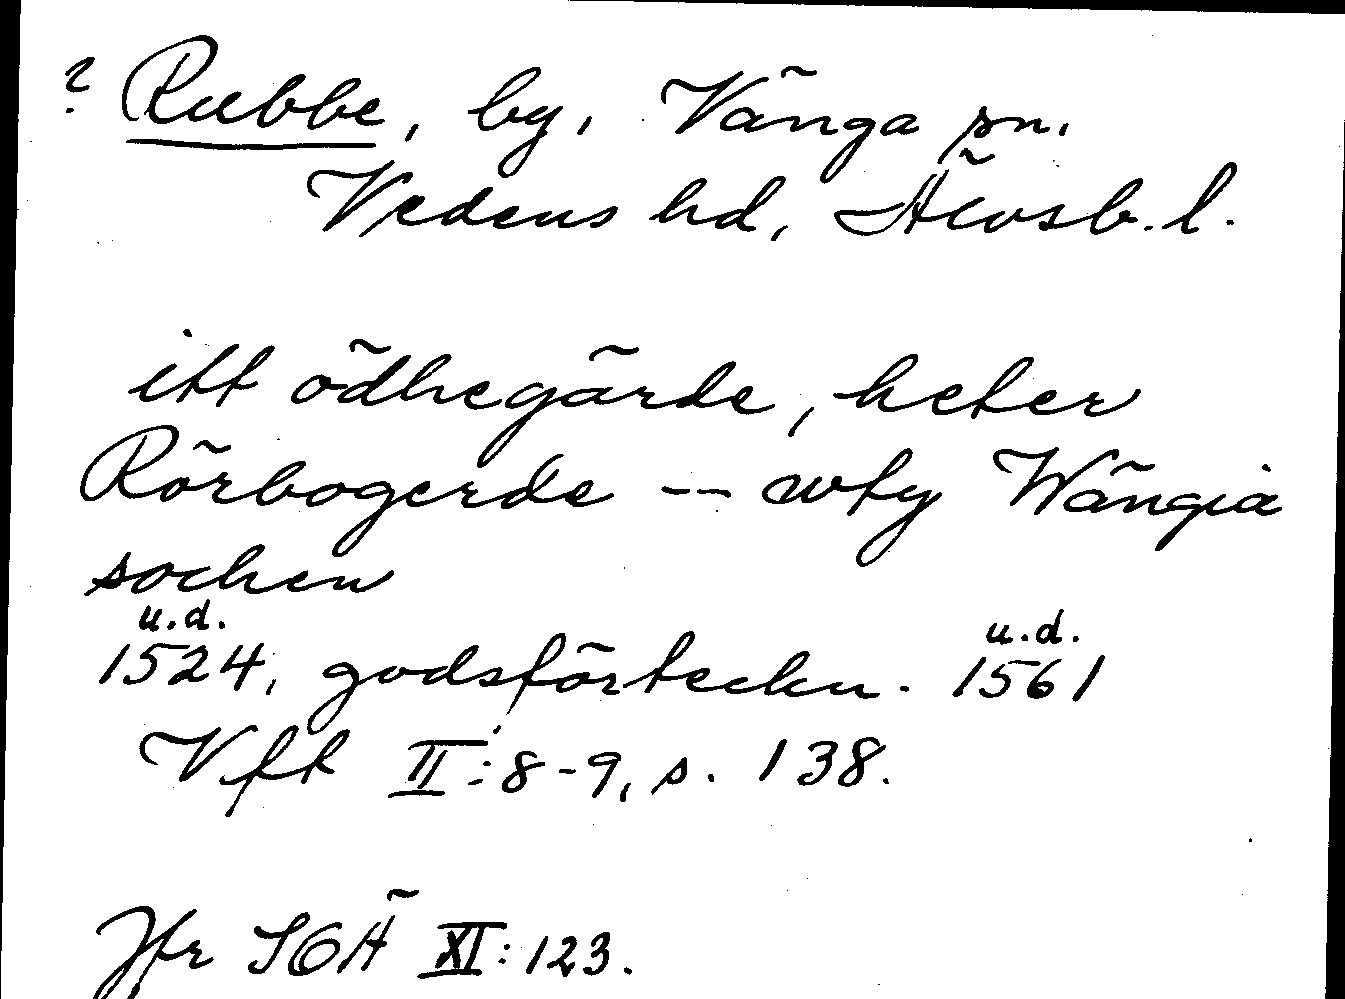 ? Rubbe, by, Vänga sn.
Vedens hd, Älvsb. l.
itt ödhegärde, heter
Rörbogerde -- wty Wängia
sochen
u.d. u.d.
1524, godsförteckn. 1561
Vft II:8-9, s. 138.
Jfr SOÄ XI:123.